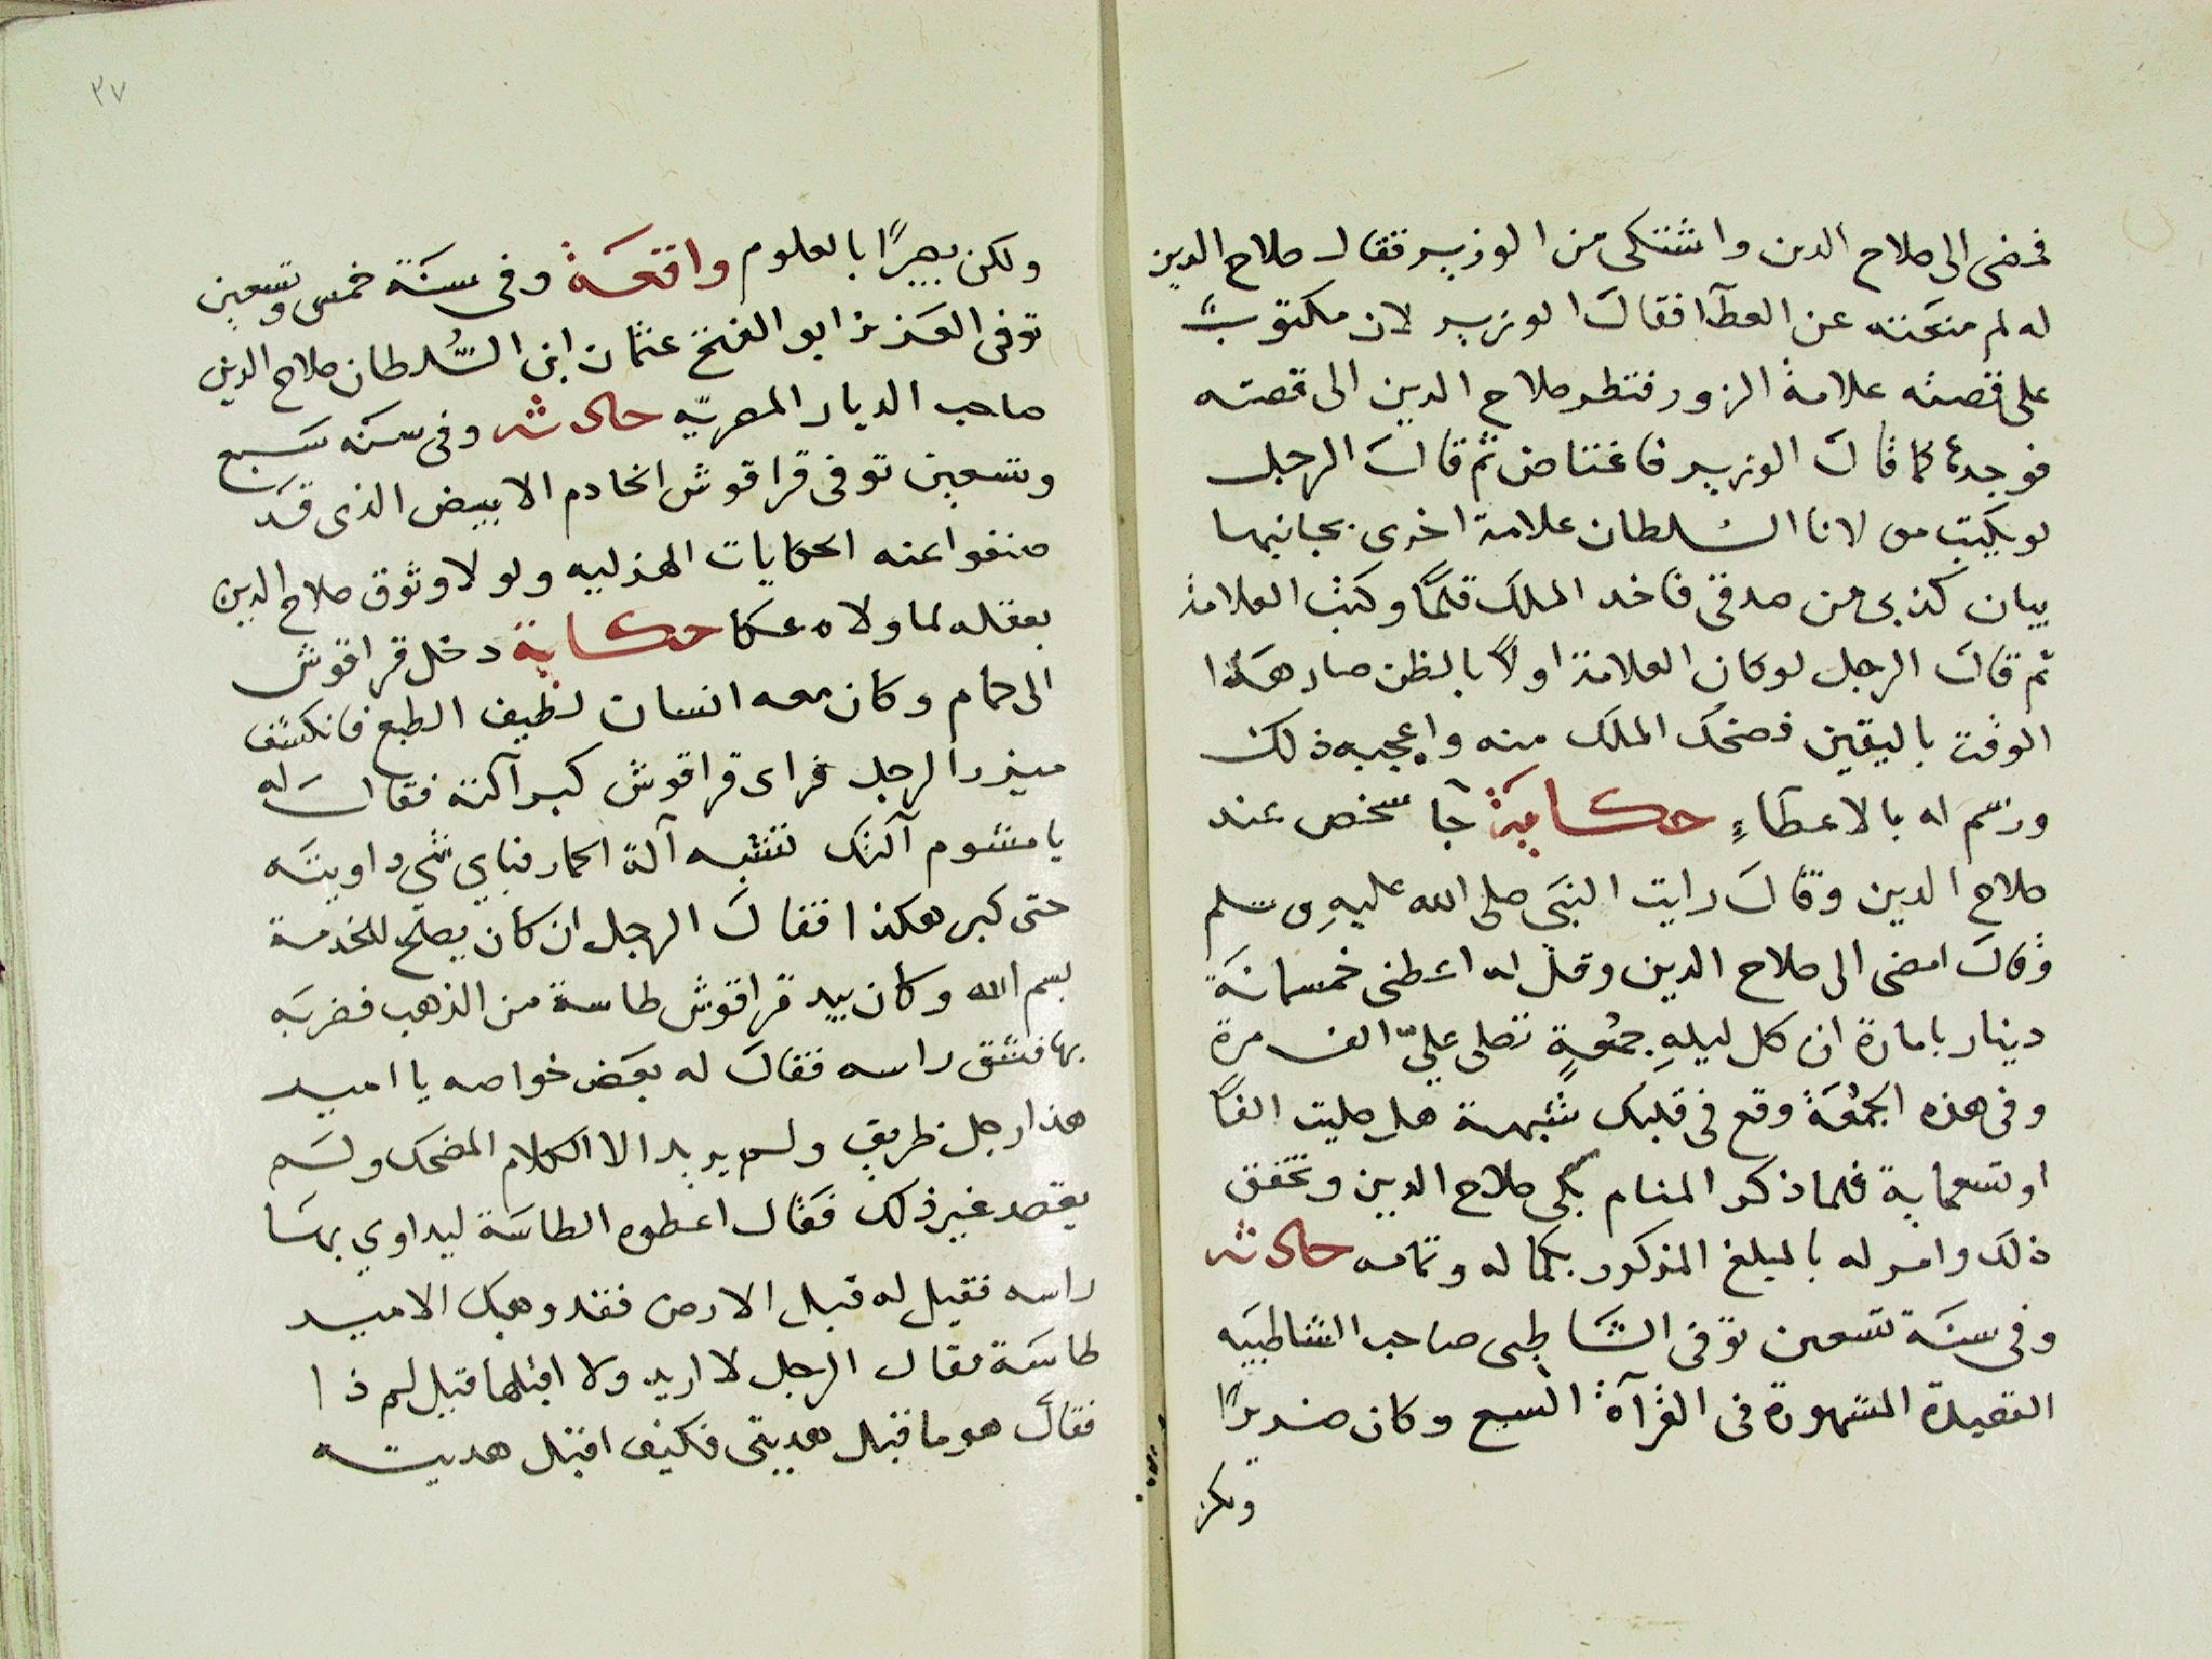 فمضى الى صلاح الدين واشتكى من الوزير فقال صلاح الدين
له لم منعته عن العطآ فقال الوزير لان مكتوبٌ
على قصته علامة الزور فنظر صلاح الدين الى قصته
فوجدها كما قال الوزير فاغتاض ثم قال الرجل
لو يكتب مولانا السلطان علامة اخرى بجانبها
يبان كذبى من صدقى فاخد الملك قلمًا وكتب العلامة
ثم قال الرجل لو كان العلامة اولًا بالظن صار هذا
الوقت باليقين فضحك الملك منه واعجبه ذلك
ورسم له بالاعطاءِ حكاية جآ شخص عند
صلاح الدين وقال رايت النبى صلى الله عليه وسلم
وقال امضى الى صلاح الدين وقل له اعطنى خمسمائة
دينار بامارة ان كل ليلهِ جمعةٍ تصلى عليّ الف مرة
وفى هذه الجمعة وقع فى قلبك شبهة هل صليت الفًا
او تسعماية فلما ذكر المنام بكى صلاح الدين وتحقق
ذلك وامر له بالمبلغ المذكور بكماله وتمامه حادثه
وفى سنة تسعين توفى الشاطبى صاحب الشاطبيه
القصيدة المشهورة فى القرآة السبع وكان ضريرًا
ولكن
٣٧
ولكن بصيرًا بالعلوم واقعة وفى سنة خمس وتسعين
توفى العزيز ابو الفتح عثمان ابن السُّلطان صلاح الدين
صاحب الديار المصريّه حادثه وفى سنه سبع
وتسعين توفى قراقوش الخادم الابيض الذى قد
صنفوا عنه الحكايات الهذليه ولولا وثوق صلاح الدين
بعقله لما ولاه عكا حكاية دخل قراقوش
الى حمام وكان معه انسان لطيف الطبع فانكشف
ميزر الرجل فراى قراقوش كبر آلته فقال له
يا مشوم آلتك تشبه آلة الحمار فباي شي داويته
حتى كبر هكذا فقال الرجل ان كان يصلح للخدمة
بسم الله وكان بيد قراقوش طاسة من الذهب فضربه
بها فشق راسه فقال له بعض خواصه يا امير
هذا رجل ظريف ولم يريد الا الكلام المضحك ولم
يقصد غير ذلك فقال اعطوه الطاسة ليداوي بها
راسه فقيل له قبل الارض فقد وهبك الامير
طاسة فقال الرجل لا اريد ولا اقبلها قيل لم ذا
فقال هو ما قبل هديتى فكيف اقبل هديته